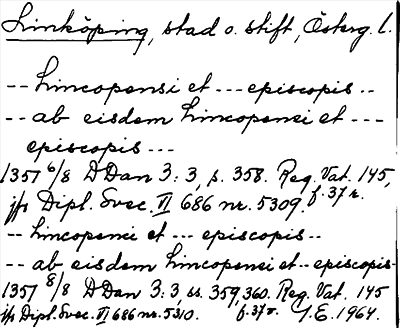 Linköping, stad o. stift, Österg. l.
-- Lincopensi et --- episcopis --
-- ab eisdem Lincopensi et ---
episcopis ---
1357 6/8 DDan 3:3, s. 358. Reg. Vat. 145,
f. 37r.
jfr Dipl. Svec. VI 686 nr. 5309.
-- Lincopensi et --- episcopis --
-- ab eisdem Lincopensi et -- episcopis--
1357 8/8 DDan 3:3, ss. 359, 360. Reg. Vat. 145
jfr Dipl. Svec. VI 686 nr. 5310. f. 37r. I.E. 1964.